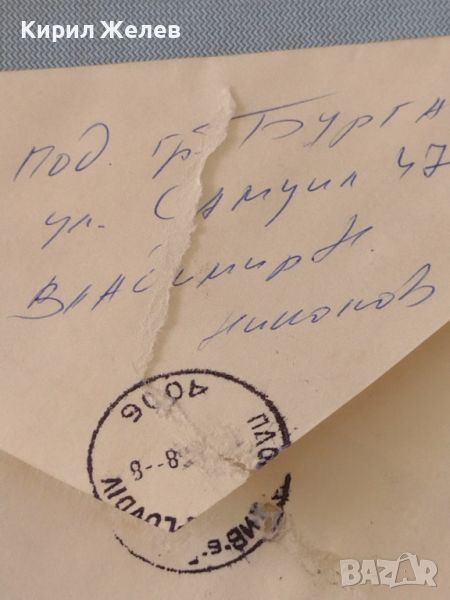 Кирил Желев
Под. гр. Бурга
ул. Самуил 47
Владимир Н.
Николов
4006
ПЛОВДИВ-6
PLOVDIV
BAZAR